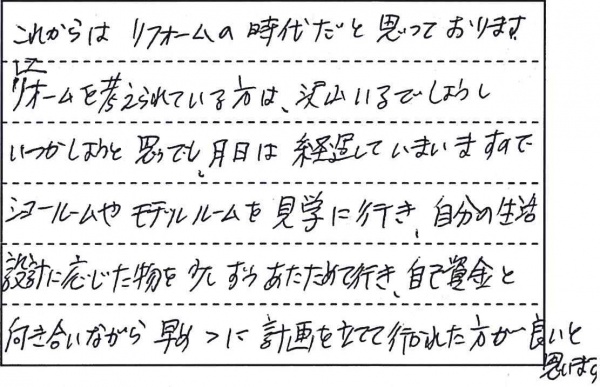 これからは リフォームの時代だと思っております
リフォームを考えられている方は、沢山いるでしょうし
いつかしようと思うでも、月日は経過していまいますので
ショールームやモデルルームを見学に行き、自分の生活
設計に応じた物を少しずつあたためて行き、自己資金と
向き合いながら早めつに計画を立てて行かれた方が良いと
思います